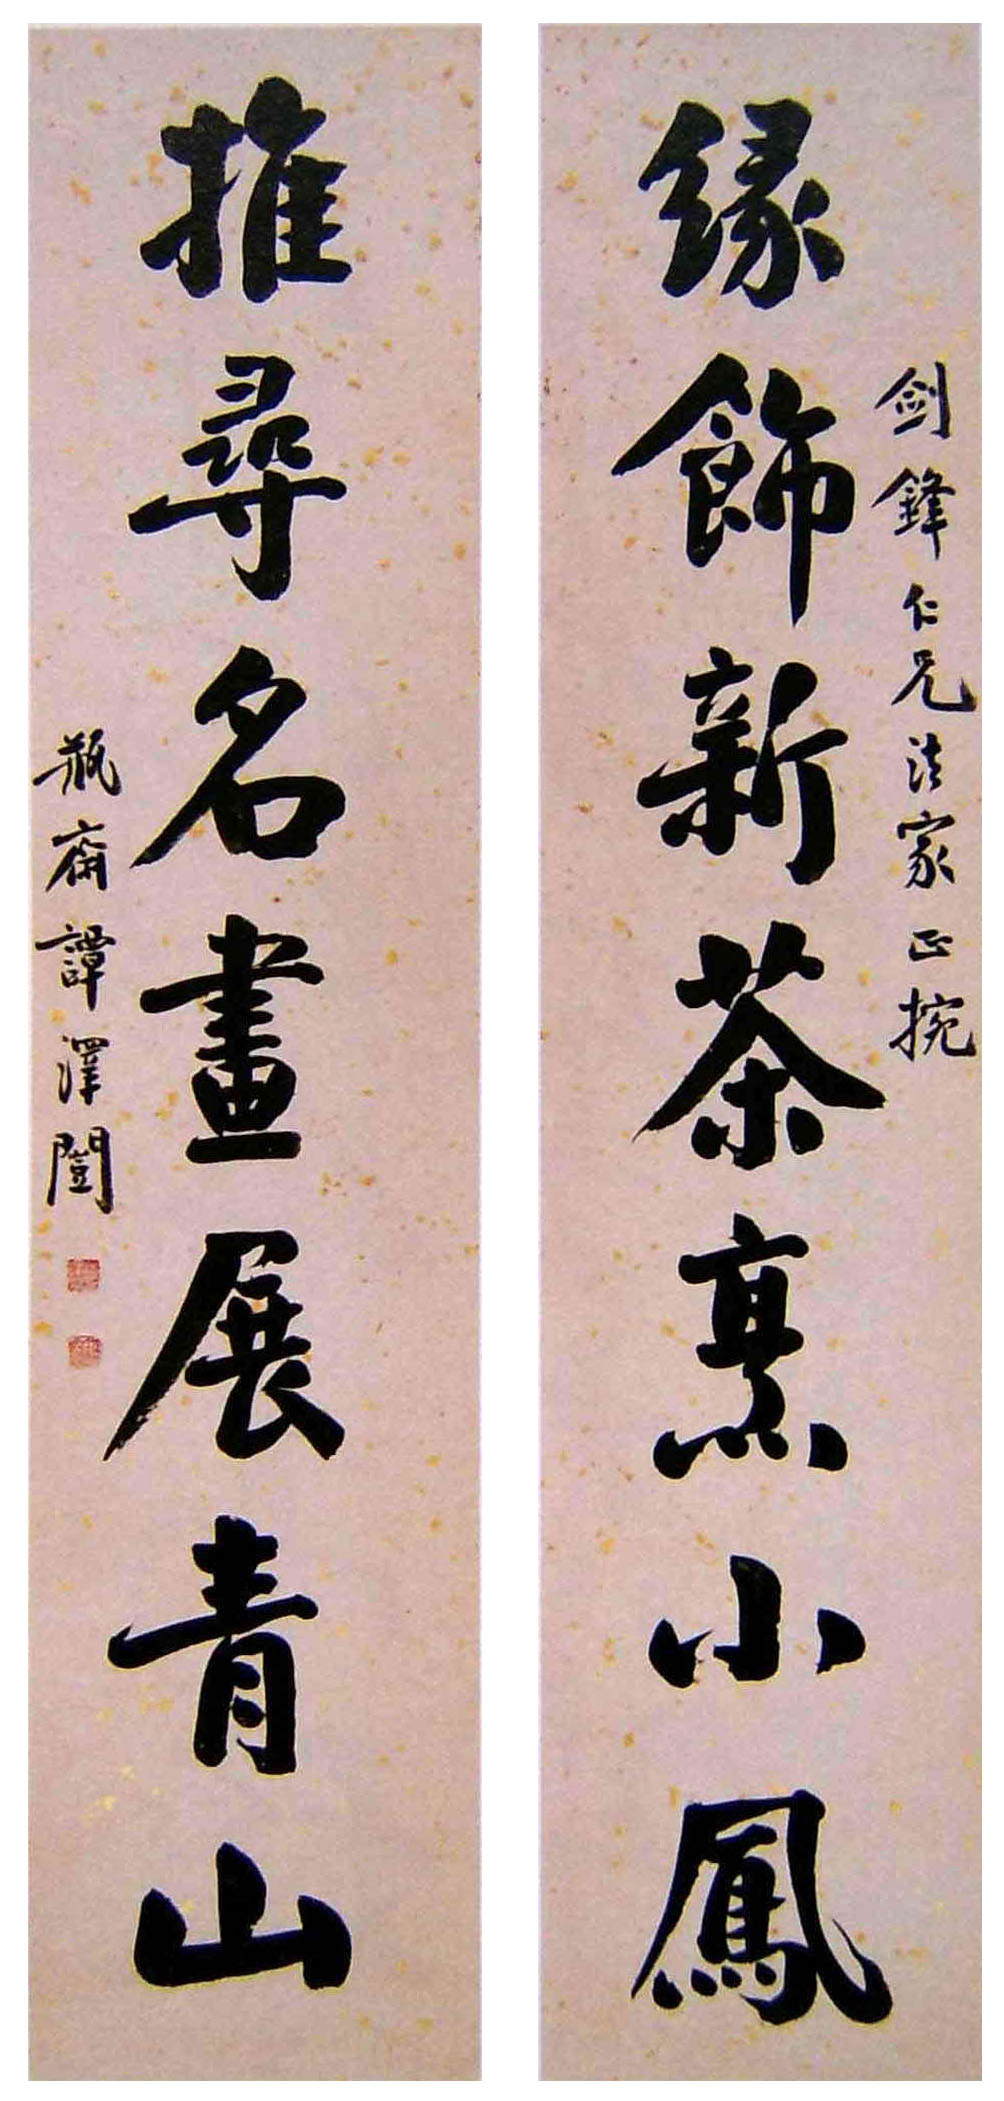 剑鋒仁兄法家正捥
缘飾新茶烹小鳳
推尋名畫展青山
瓶齋譚澤闓